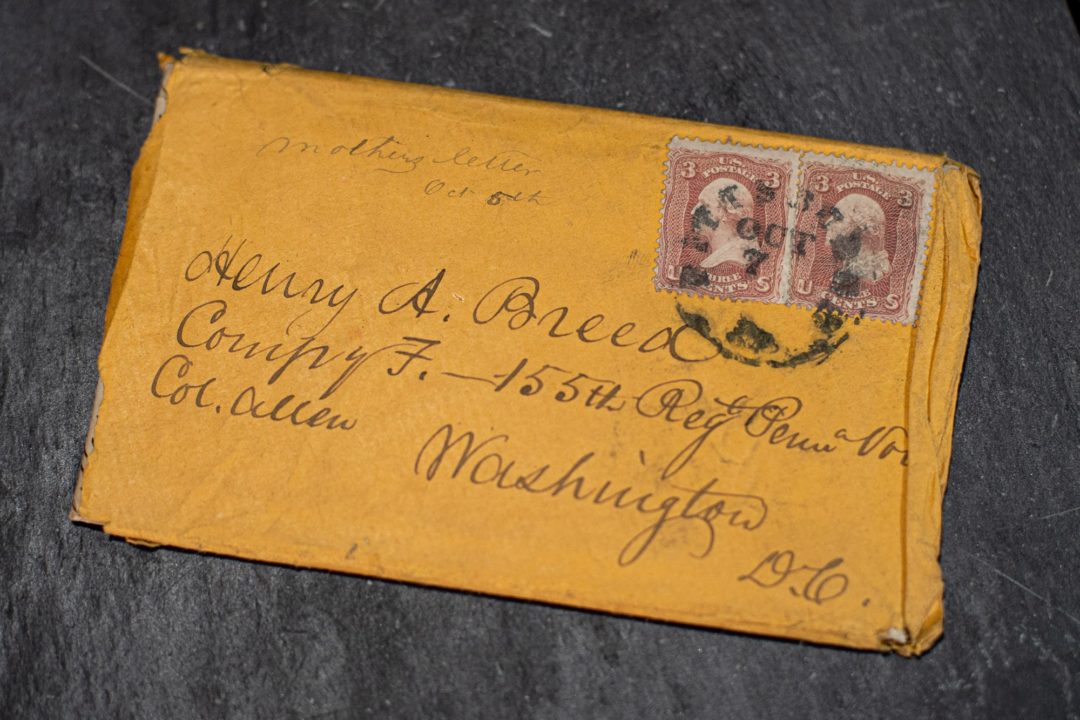 mothers letter
Oct 5th
3 U.S. POSTAGE 3
3 U.S. POSTAGE 3
OCT
7
U THREE CENTS S
U CENTS S
Henry A. Breed
Compy F. — 155th Regt Penna Vol
Col. Allen
Washington
D.C.